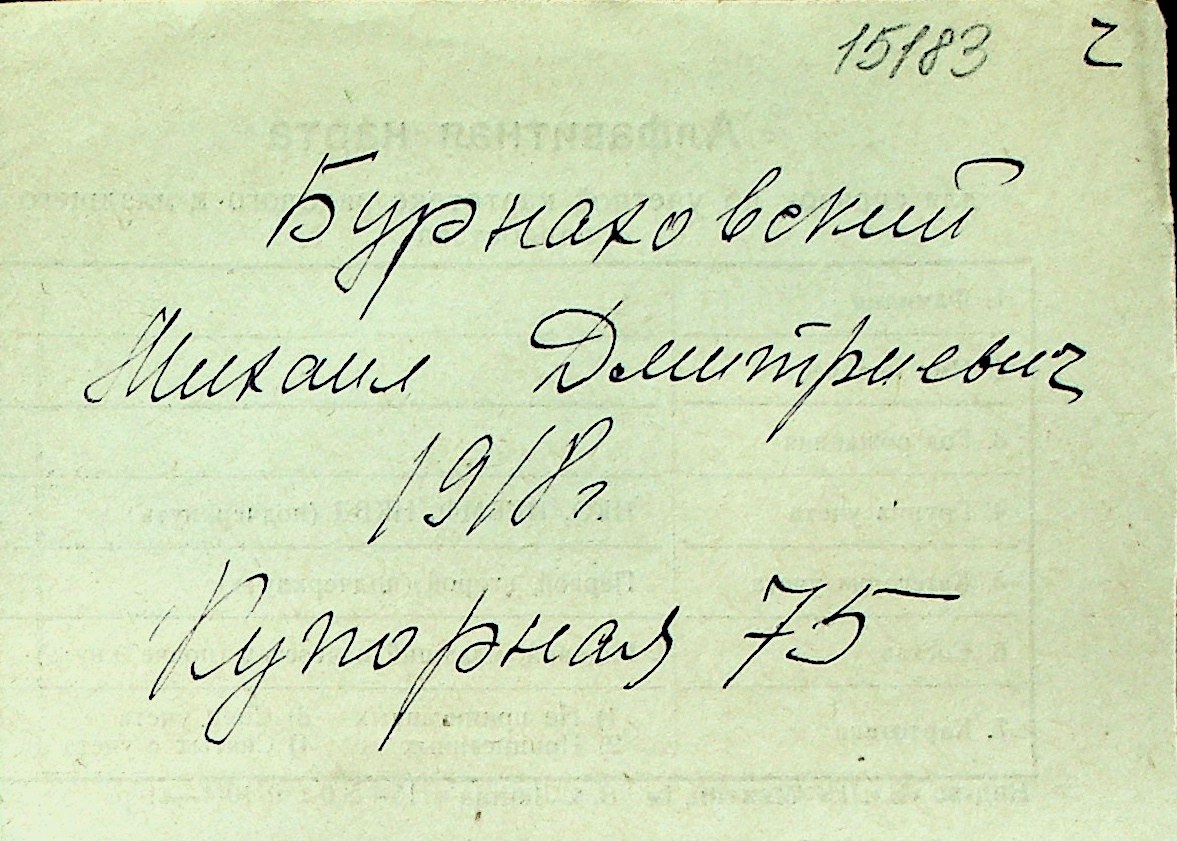 15183 ч
Бурнаховский
Михаил Дмитриевич
1918г.
Купорная 75